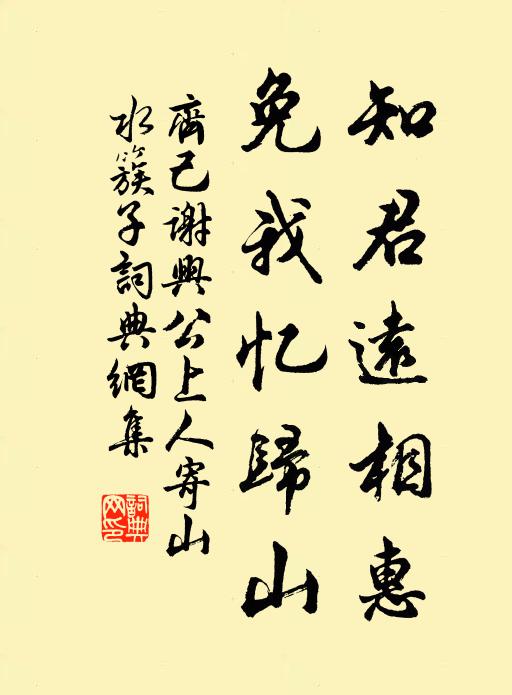 知君遠相惠
免我忆歸山
齊己謝興公上人寄山
水簇子詞典網集
詞典网印